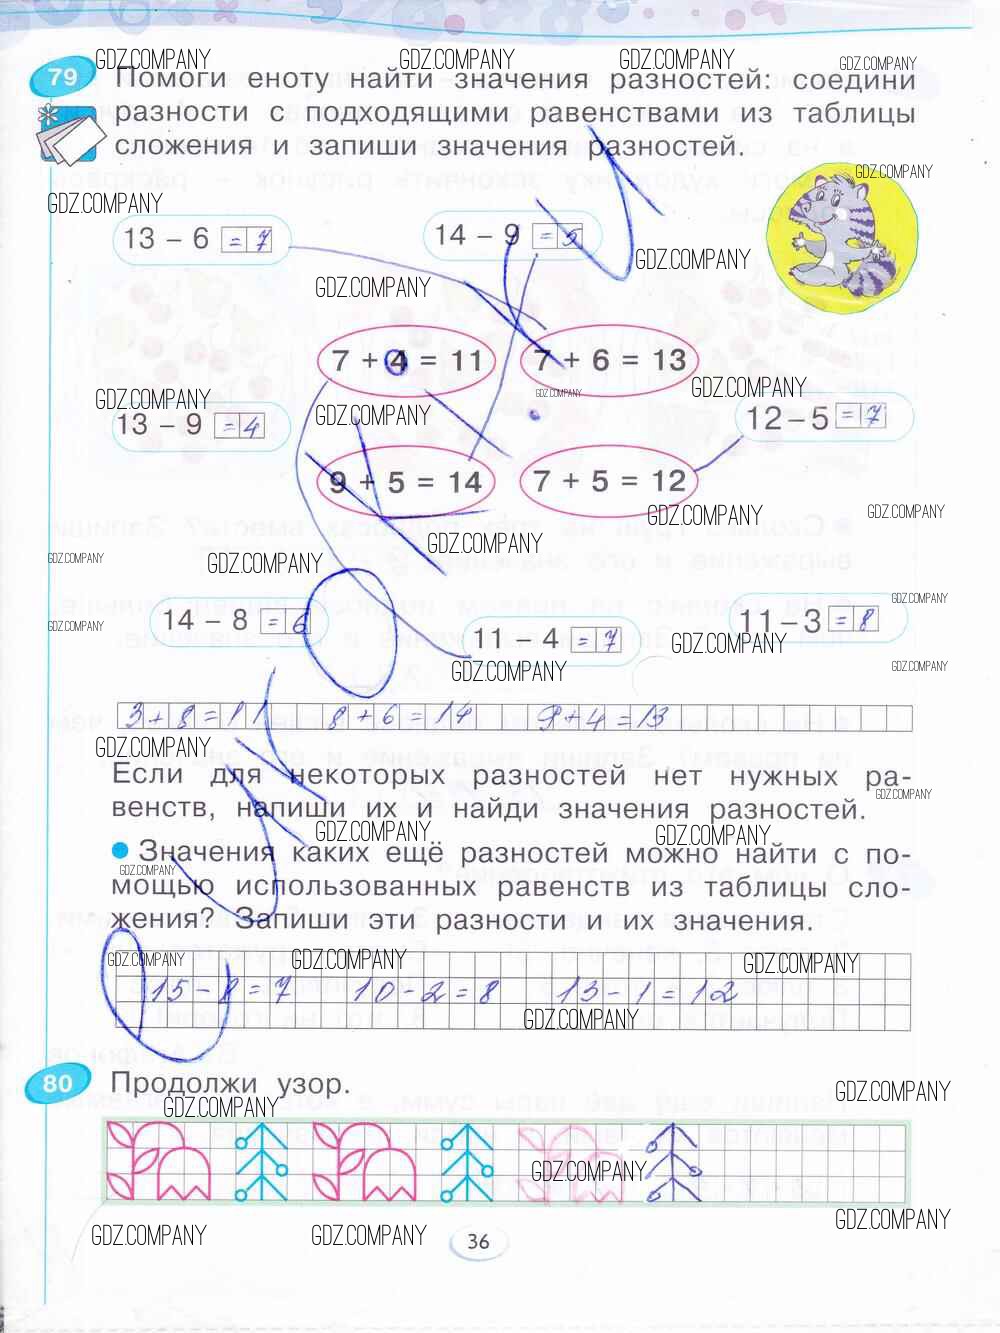 GDZ.COMPANY GDZ.COMPANY GDZ.COMPANY GDZ.COMPANY
79 Помоги еноту найти значения разностей: соедини
разности с подходящими равенствами из таблицы
сложения и запиши значения разностей.
GDZ.COMPANY
GDZ.COMPANY
13 – 6 = 7 14 – 9 = 5
GDZ.COMPANY
GDZ.COMPANY
7 + 4 = 11 7 + 6 = 13
GDZ.COMPANY GDZ.COMPANY GDZ.COMPANY
GDZ.COMPANY
13 – 9 = 4 12 – 5 = 7
9 + 5 = 14 7 + 5 = 12
GDZ.COMPANY GDZ.COMPANY
GDZ.COMPANY
GDZ.COMPANY GDZ.COMPANY
GDZ.COMPANY
14 – 8 = 6 11 – 4 = 7 11 – 3 = 8
GDZ.COMPANY
GDZ.COMPANY
GDZ.COMPANY GDZ.COMPANY
3 + 8 = 11 8 + 6 = 14 9 + 4 = 13
GDZ.COMPANY
Если для некоторых разностей нет нужных ра-
GDZ.COMPANY
венств, напиши их и найди значения разностей.
GDZ.COMPANY GDZ.COMPANY
Значения каких ещё разностей можно найти с по-
GDZ.COMPANY
мощью использованных равенств из таблицы сло-
жения? Запиши эти разности и их значения.
GDZ.COMPANY GDZ.COMPANY GDZ.COMPANY
15 – 8 = 7 10 – 2 = 8 13 – 1 = 12
GDZ.COMPANY
80 Продолжи узор.
GDZ.COMPANY
GDZ.COMPANY
GDZ.COMPANY
GDZ.COMPANY
GDZ.COMPANY GDZ.COMPANY
36